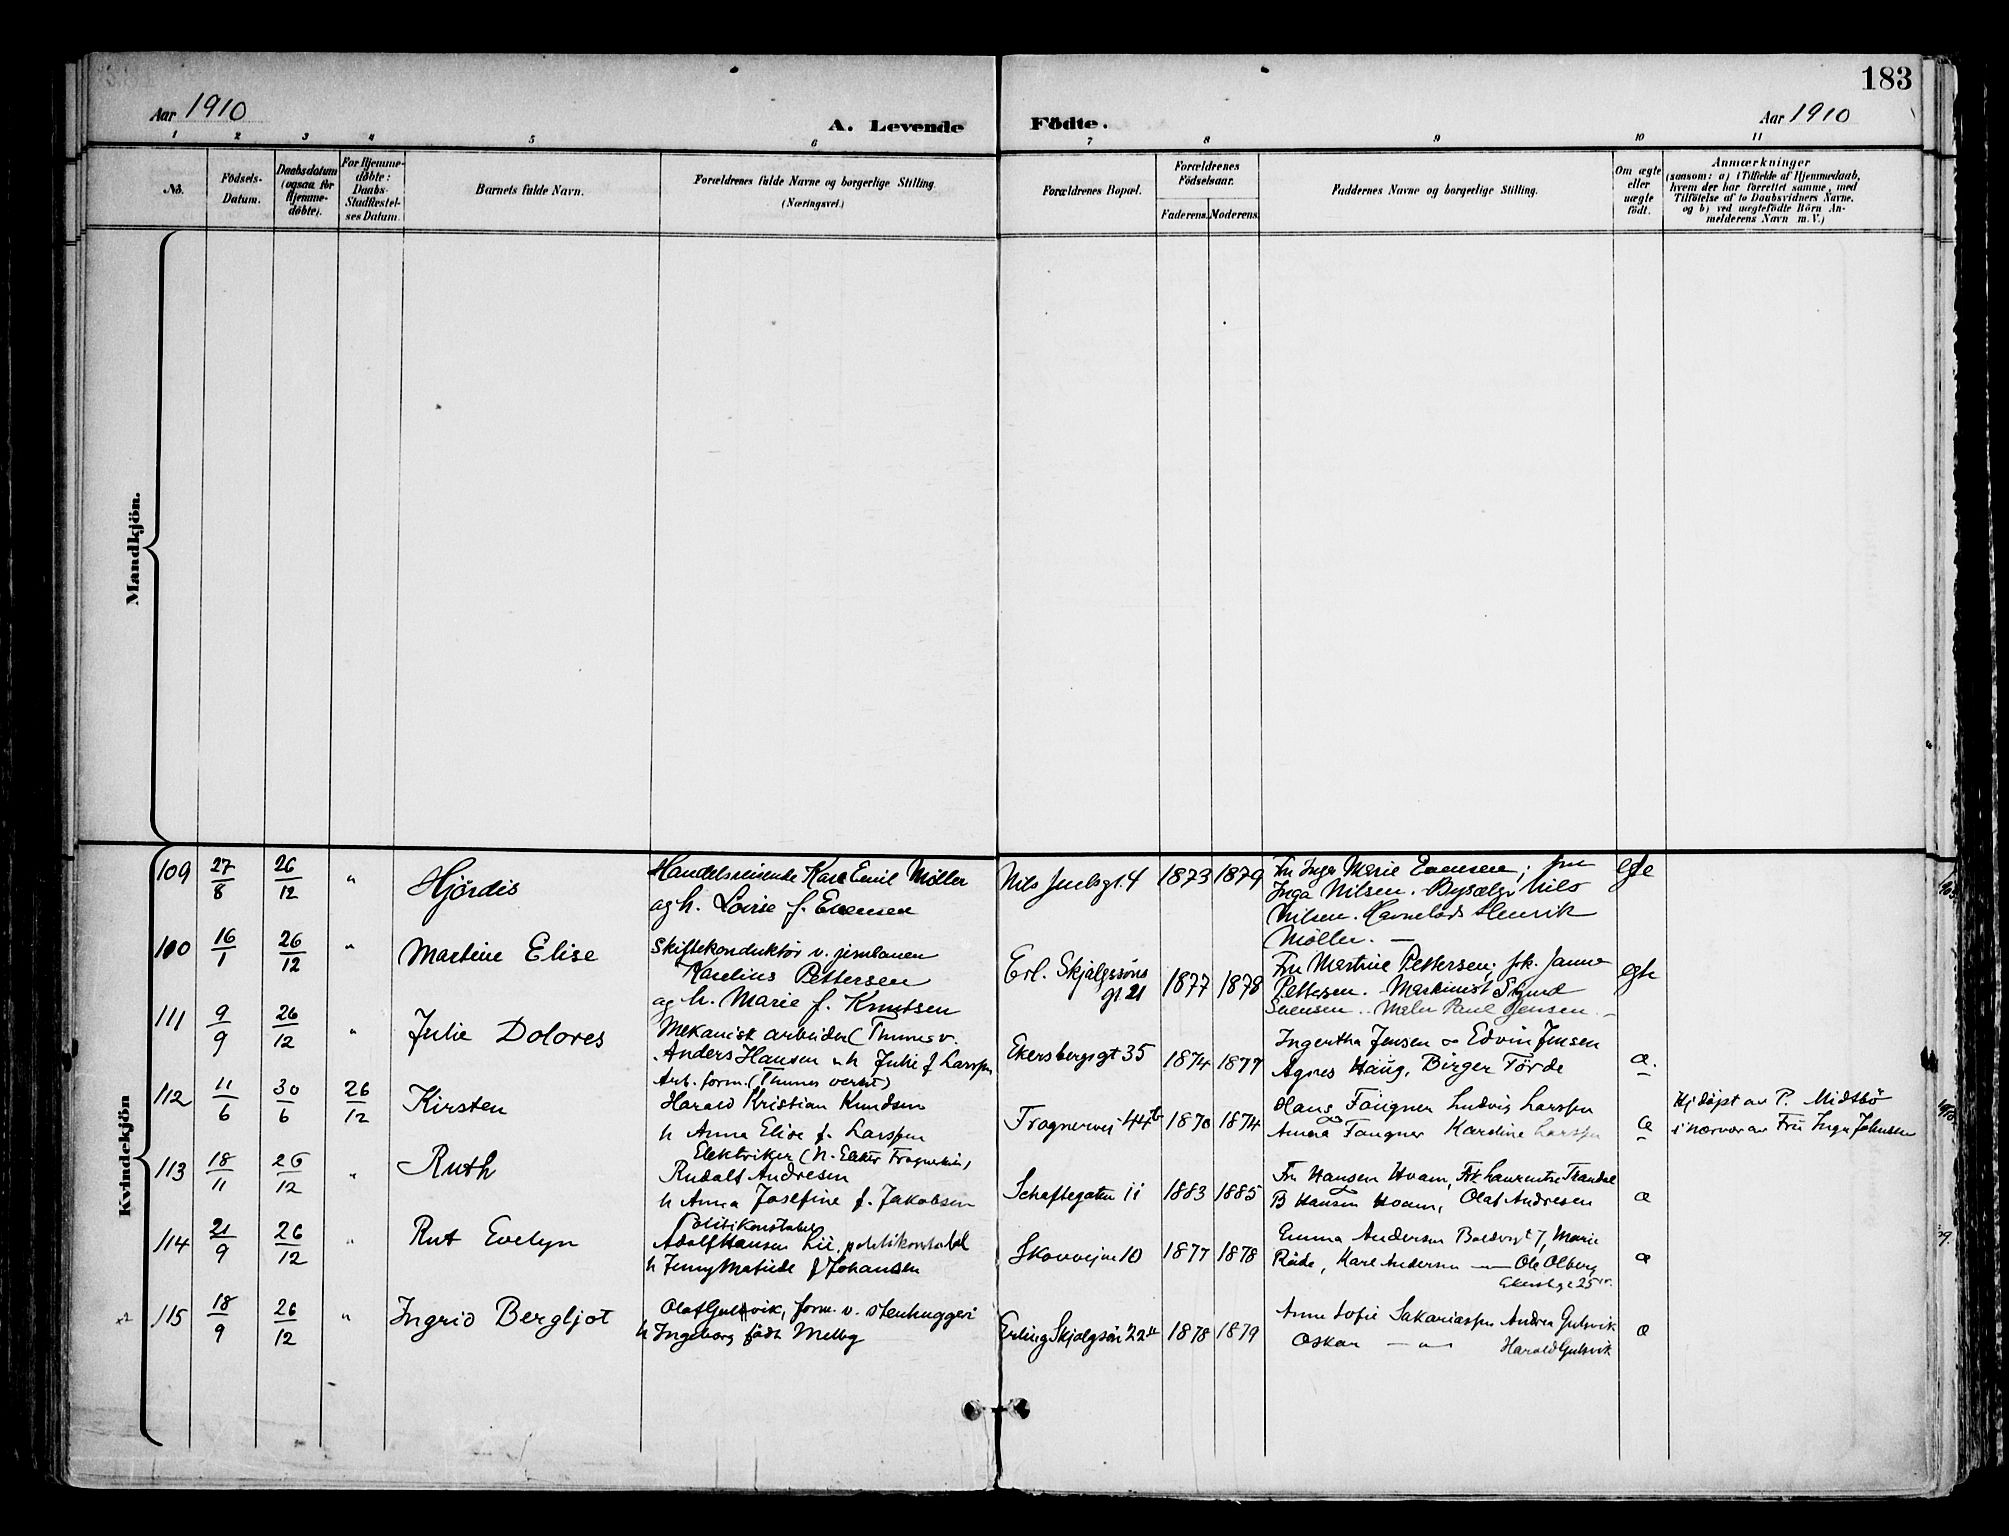 183
Aar 1910
A. Levende Födte.
Aar 1910
1 2 3 4 5 6 7 8 9 10 11
No.
Födsels-
Datum.
Daabsdatum
(ogsaa for
Hjemme-
döbte).
For Hjemme-
döbte:
Daabs-
Stadfæstel-
ses Datum.
Barnets fulde Navn.
Forældrenes fulde Navne og borgerlige Stilling.
(Næringsvei.)
Forældrenes Bopæl.
Forældrenes
Födselsaar.
Faderens. Moderens.
Faddernes Navne og borgerlige Stilling.
Om ægte
eller
uægte
födt.
Anmærkninger
(saasom: a) i Tilfælde af Hjemmedaab,
hvem der har forrettet samme, med
Tilföielse af to Daabsvidners Navne,
og b) ved uægtefödte Börn An-
melderens Navn m.V.)
Mandkjön.
Kvindekjön
109 27/8 26/12 " Hjördis
Handelsreisende Karl Emil Möller
og h. Lovise f. Evensen
Nils Juelsgt. 4 1873 1879
Fru Inga Marie Evensen; fru
Inga Nilsen. Bysælg. Nils
Nilsen. Havnelods Henrik
Möller. —
egte
100 16/1 26/12 " Martine Elise
Skiftekonduktör v. jernbanen
Karelius Pettersen
og h. Marie f. Knutsen
Erl. Skjalgssöns
gt 21
1877 1878
Fru Martine Pettersen; frk. Janna
Pettersen. Maskinist
Svensen. Maler Paul Jensen. —
egte
111 9/9 26/12 " Julie Dolores
Mekanisk arbeider (Thunes v.
Anders Hansen o h Julie f Larssen
Ekersbergsgt 35 1874 1877
Ingertha Jensen o Edvin Jensen
Agnes Haug, Birger Förde
æ.
112 11/6 30/6 26/12 Kirsten
Arb. form. (Thunes verkst)
Harald Kristian Knudsen
h Anna Elise f. Larssen
Frognervei 44b 1870 1874
Hans Faugner Ludvig Larssen
Anna Faugner Kardine Larssen
æ
Hj döpt av P. Midtbö
i nærvær av Fru Inga Johnsen
113 18/11 26/12 " Ruth
Elektriker (N. Elektr Frognerkilen)
Rudolf Andresen
h Anna Josefine f. Jakobsen
Schaftegaten 11 1883 1885
Fru Hansen Hvam, Frk Laurentse Trandal
B Hansen Hvam, Olaf Andresen
æ
114 21/9 26/12 " Rut Evelyn
Politikonstabel
Adolf Hansen Lie, politikonstabel
h Jenny Matilde f Johansen
Skovveien 10 1877 1878
Emma Andersen 7, Marie
Röde, Karl Andersen —"— Ole Olberg
æ
115 18/9 26/12 " Ingrid Bergljot
Olaf Gulsvik, form. v. stenhuggeri
h Ingeborg födt Melby
Erling Skjalgsön 22 1878 1879
Anne Sofie Sakariassen Andrea Gulsvik
Oskar —"— Harald Gulsvik
æ